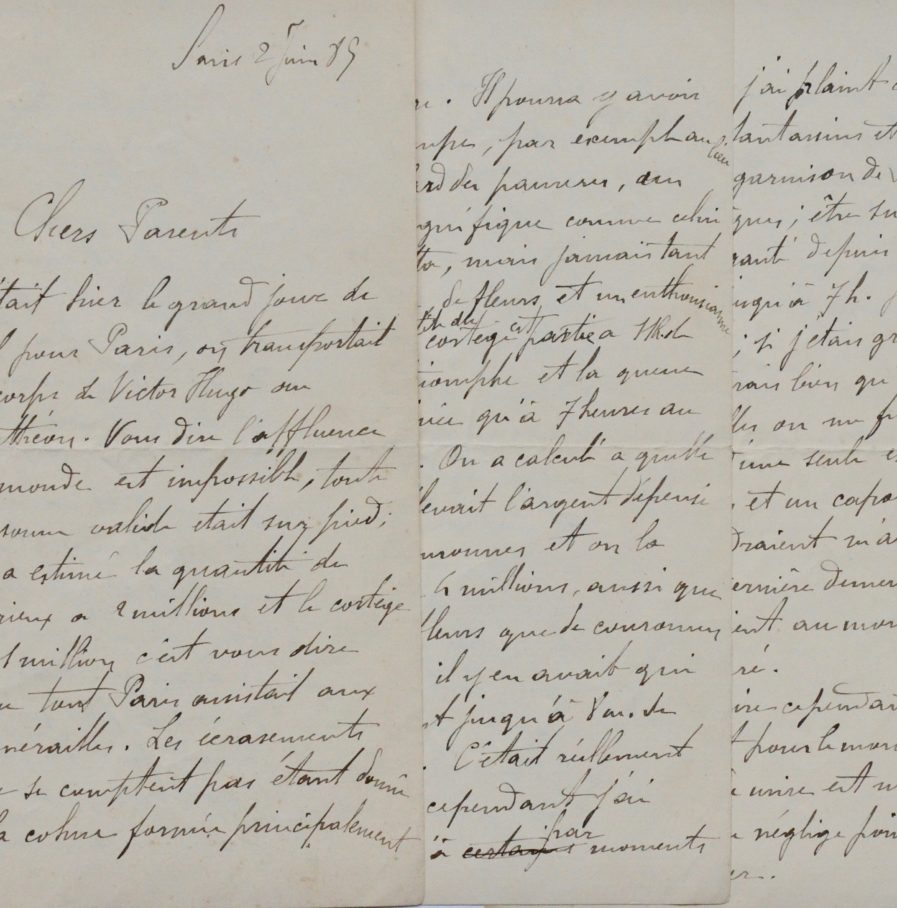 Paris 2 Juin 85
Chers Parents
était hier le grand jour de
pour Paris, on transportait
corps de Victor Hugo au
théon. Vous dire l'affluence
monde est impossible, toute
sonne valide était sur pied;
a estimé la quantité de
rieux a 2 millions et le cortège
1 million c'est vous dire
tout Paris assistait aux
nérailles. Les écrasements
se comptent pas étant donné
la cohue formée principalement
Il pourra y avoir
par exemple au lieu
des pauvres, un
gnifique comme celui
mais jamais tant
de fleurs et un enthousiasme
tête du
cortège est partie a 11h. de
iomphe et la queue
qu'à 7 heures au
On a calculé a quelle
levait l'argent dépensé
ronnes et on la
6 millions, aussi que
fleurs que de couronnes
il y en avait qui
t jusqu'à 8 m. de
C'était réellement
cependant j'ai
par
à certains moments
j'ai plaint
fantassins et
garnison de
ques; être su
depuis
usqu'à 7h.
; si j'etais gr
rais bien qu
on me f
une seule
et un capo
draient m'a
ernière demeu
ent au mon
ré.
cependan
t pour le mon
est
néglige poin